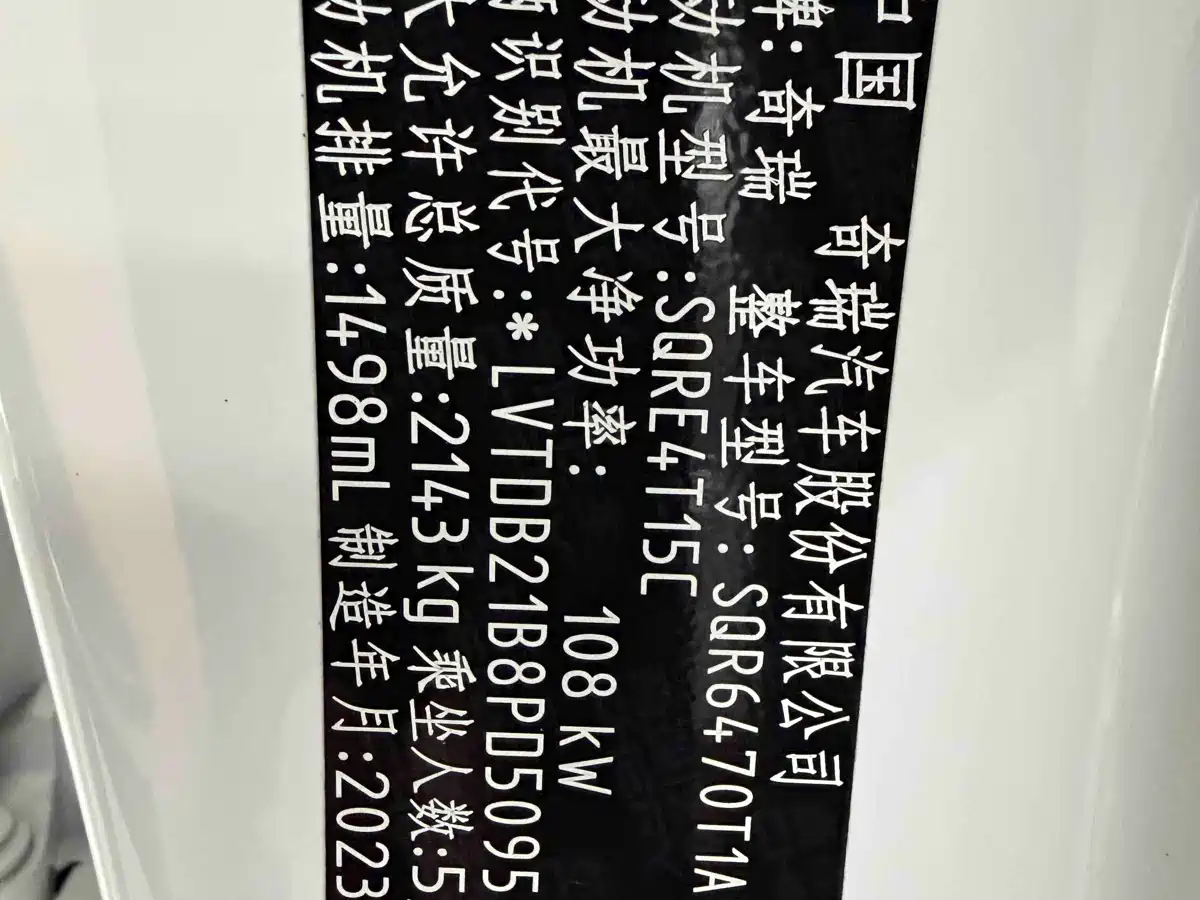 中国 奇瑞汽车股份有限公司
牌:奇瑞 整车型号:SQR6470T1A
动机型号:SQRE4T15C
动机最大净功率: 108 kW
辆识别代号:* LVTDB21B8PD5095
大允许总质量:2143kg 乘坐人数:5
动机排量:1498mL 制造年月:2023